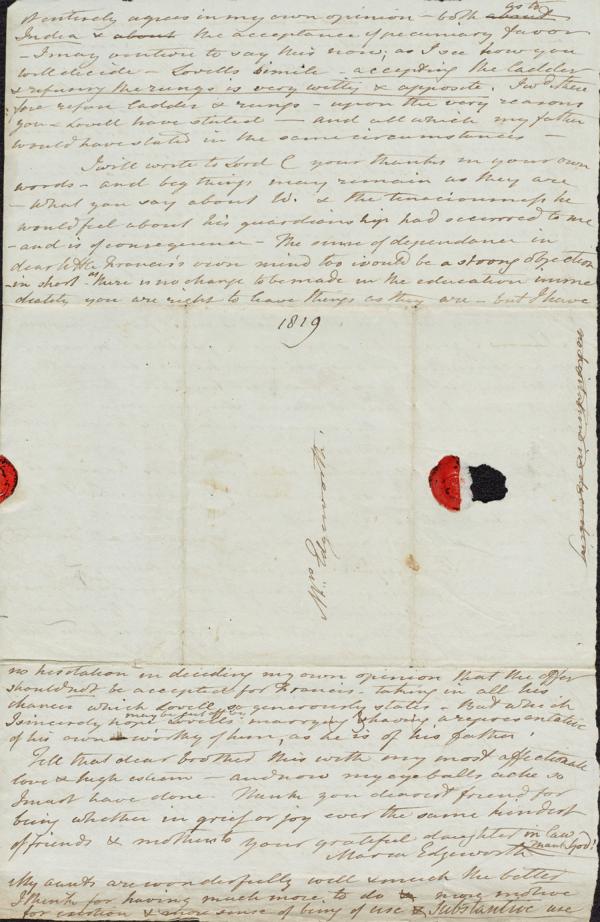 & entirely agrees in my own opinion - both about go to
India & about the acceptance of pecuniary favor
- I may venture to say this now, as I see how you
will decide - Lovells simile - accepting the ladder
& refusing the rungs is very witty & apposite. I wd. there
fore refuse ladder & rungs - upon the very reasons
you & Lovell have stated - and all which my father
would have stated in the same circumstances -
I will write to Lord C your thanks in your own
words - and beg things may remain as they are
- What you say about W. & the tenaciousness he
would feel about his guardianship had occurred to me
- and is of consequence - The sense of dependance in
dear little Francis's own mind too would be a strong objection
- in short as there is no change to be made in the education imme
diately you are right to leave things as they are - but I have
1819
Mrs. Edgeworth.
no hesitation in deciding my own opinion that the offer
should not be accepted for Francis - taking in all his
chances which Lovell so generously states - But which
I sincerely hope Lovells marrying & having a representative
of his own worthy of him, as he is of his father!
Tell that dear brother this with my most affectionate
love & high esteem - and now my eyeballs ache so
I must have done. Thank you dearest friend for
being whether in grief or joy ever the same kindest
of friends & mothers to your grateful daughter in law
thank God!
Maria Edgeworth
My aunts are wonderfully well & much the better
I think for having much more to do more motive
for exertion & more sense of being of use & substantive use